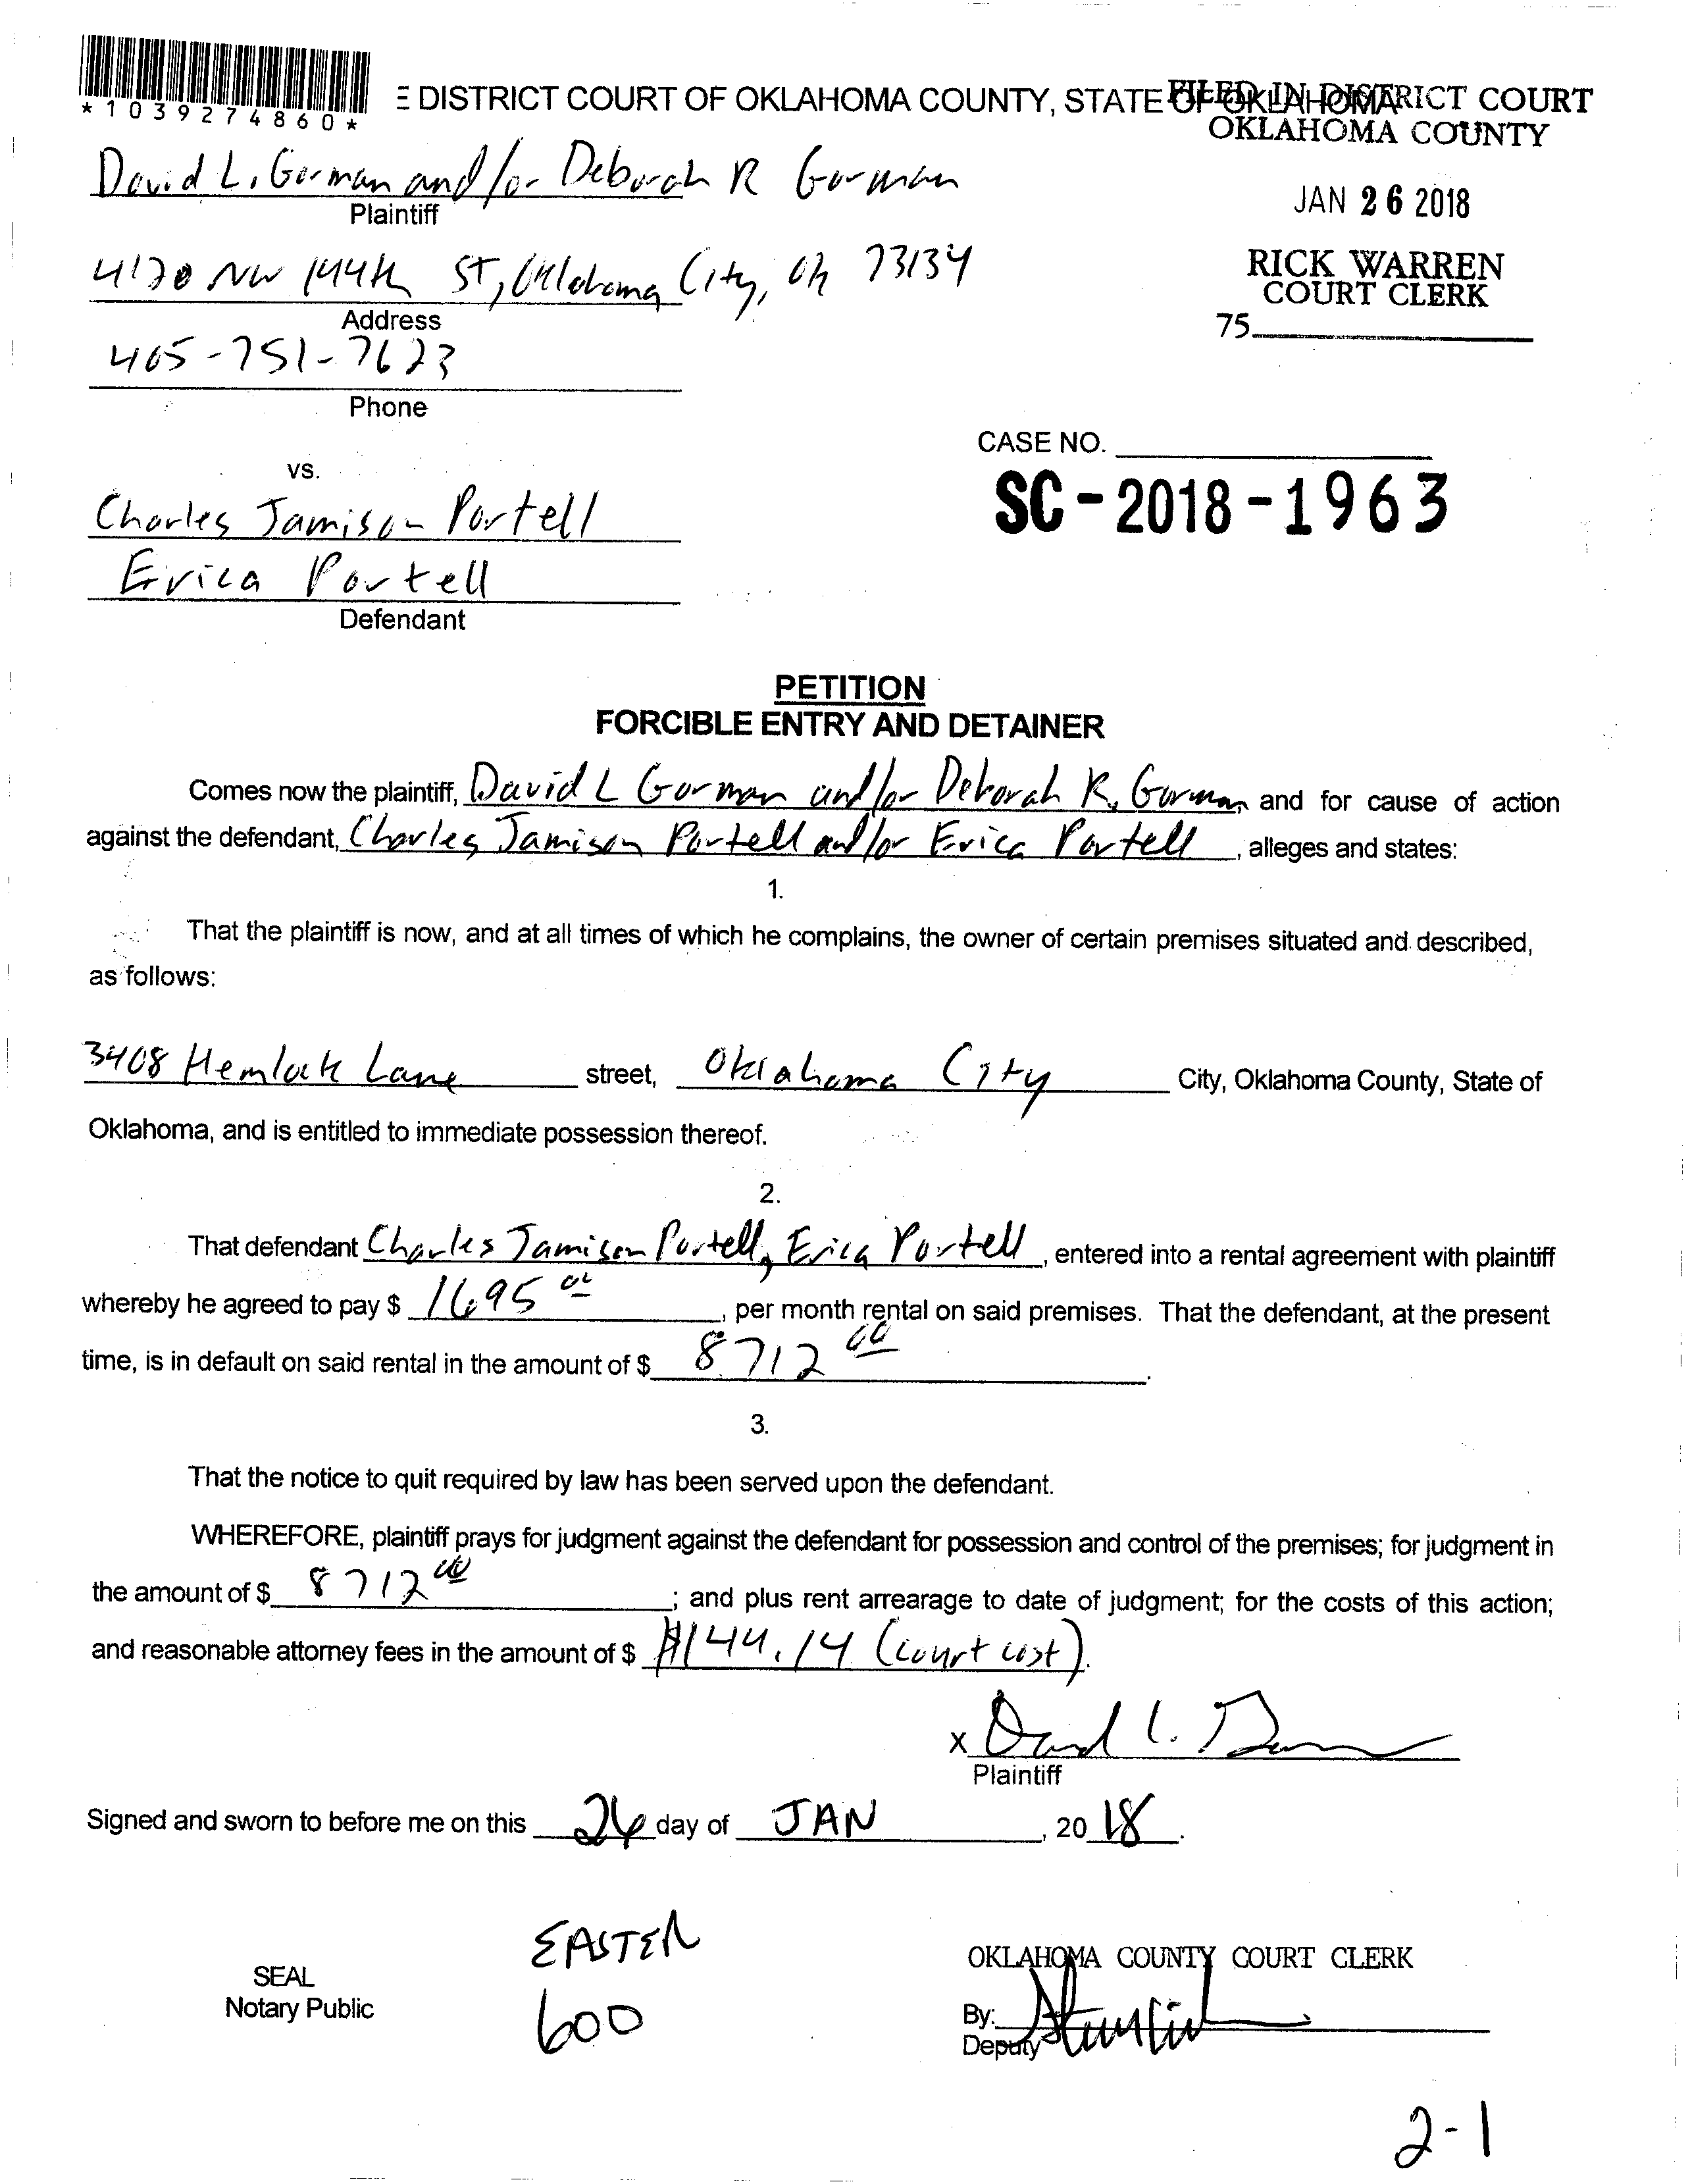 *1039274860*
E DISTRICT COURT OF OKLAHOMA COUNTY, STATE OF OKLAHOMA
FILED IN DISTRICT COURT
OKLAHOMA COUNTY
David L. Gorman and/or Deborah R Gorman
Plaintiff
JAN 26 2018
4120 NW 144th ST, Oklahoma City, Ok 73134
Address
RICK WARREN
COURT CLERK
75
405-751-7623
Phone
CASE NO.
vs.
SC-2018-1963
Charles Jamison Portell
Erica Portell
Defendant
PETITION
FORCIBLE ENTRY AND DETAINER
Comes now the plaintiff, David L Gorman and/or Deborah R. Gorman and for cause of action
against the defendant, Charles Jamison Portell and/or Erica Portell, alleges and states:
1.
That the plaintiff is now, and at all times of which he complains, the owner of certain premises situated and described,
as follows:
3408 Hemlock Lane street, Oklahoma City City, Oklahoma County, State of
Oklahoma, and is entitled to immediate possession thereof.
2.
That defendant Charles Jamison Portell, Erica Portell, entered into a rental agreement with plaintiff
whereby he agreed to pay $ 1695 00, per month rental on said premises. That the defendant, at the present
time, is in default on said rental in the amount of $ 8712 00.
3.
That the notice to quit required by law has been served upon the defendant.
WHEREFORE, plaintiff prays for judgment against the defendant for possession and control of the premises; for judgment in
the amount of $ 8712 00; and plus rent arrearage to date of judgment; for the costs of this action;
and reasonable attorney fees in the amount of $ $144.14 (court cost).
x David L. Gorman
Plaintiff
Signed and sworn to before me on this 26 day of JAN, 20 18.
EASTER
600
SEAL
Notary Public
OKLAHOMA COUNTY COURT CLERK
By:
Deputy
2-1